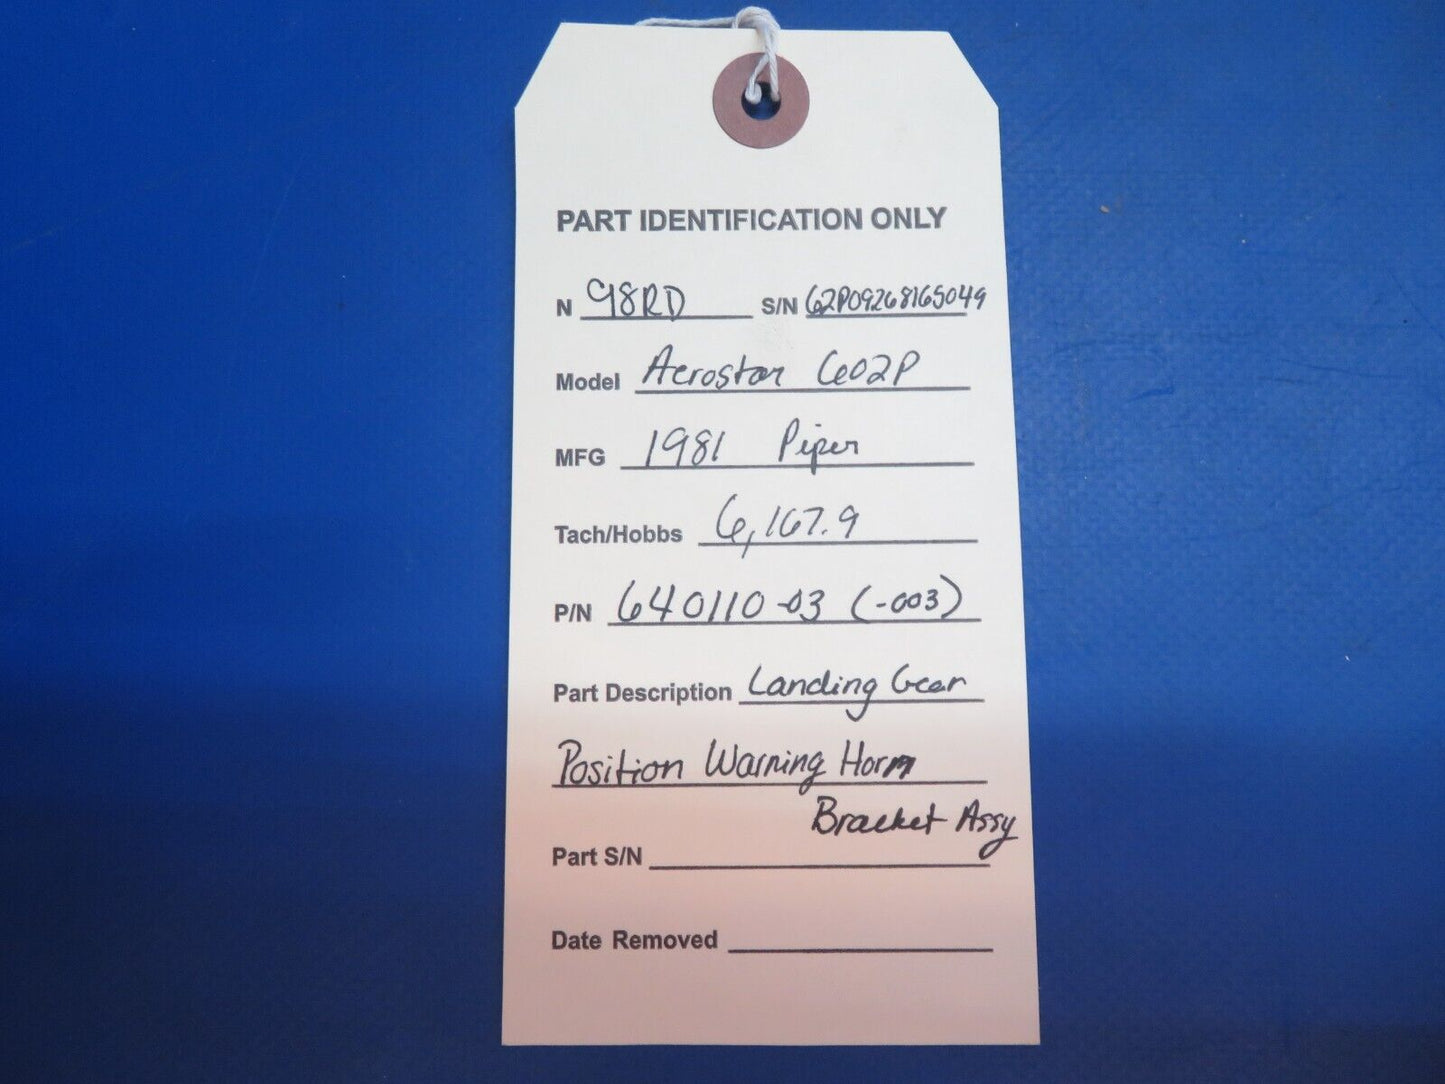 PART IDENTIFICATION ONLY
N 98RD S/N 62P09268165049
Model Aerostar 602P
MFG 1981 Piper
Tach/Hobbs 6,167.9
P/N 640110-03 (-003)
Part Description Landing Gear
Position Warning Horn
Bracket Assy
Part S/N
Date Removed